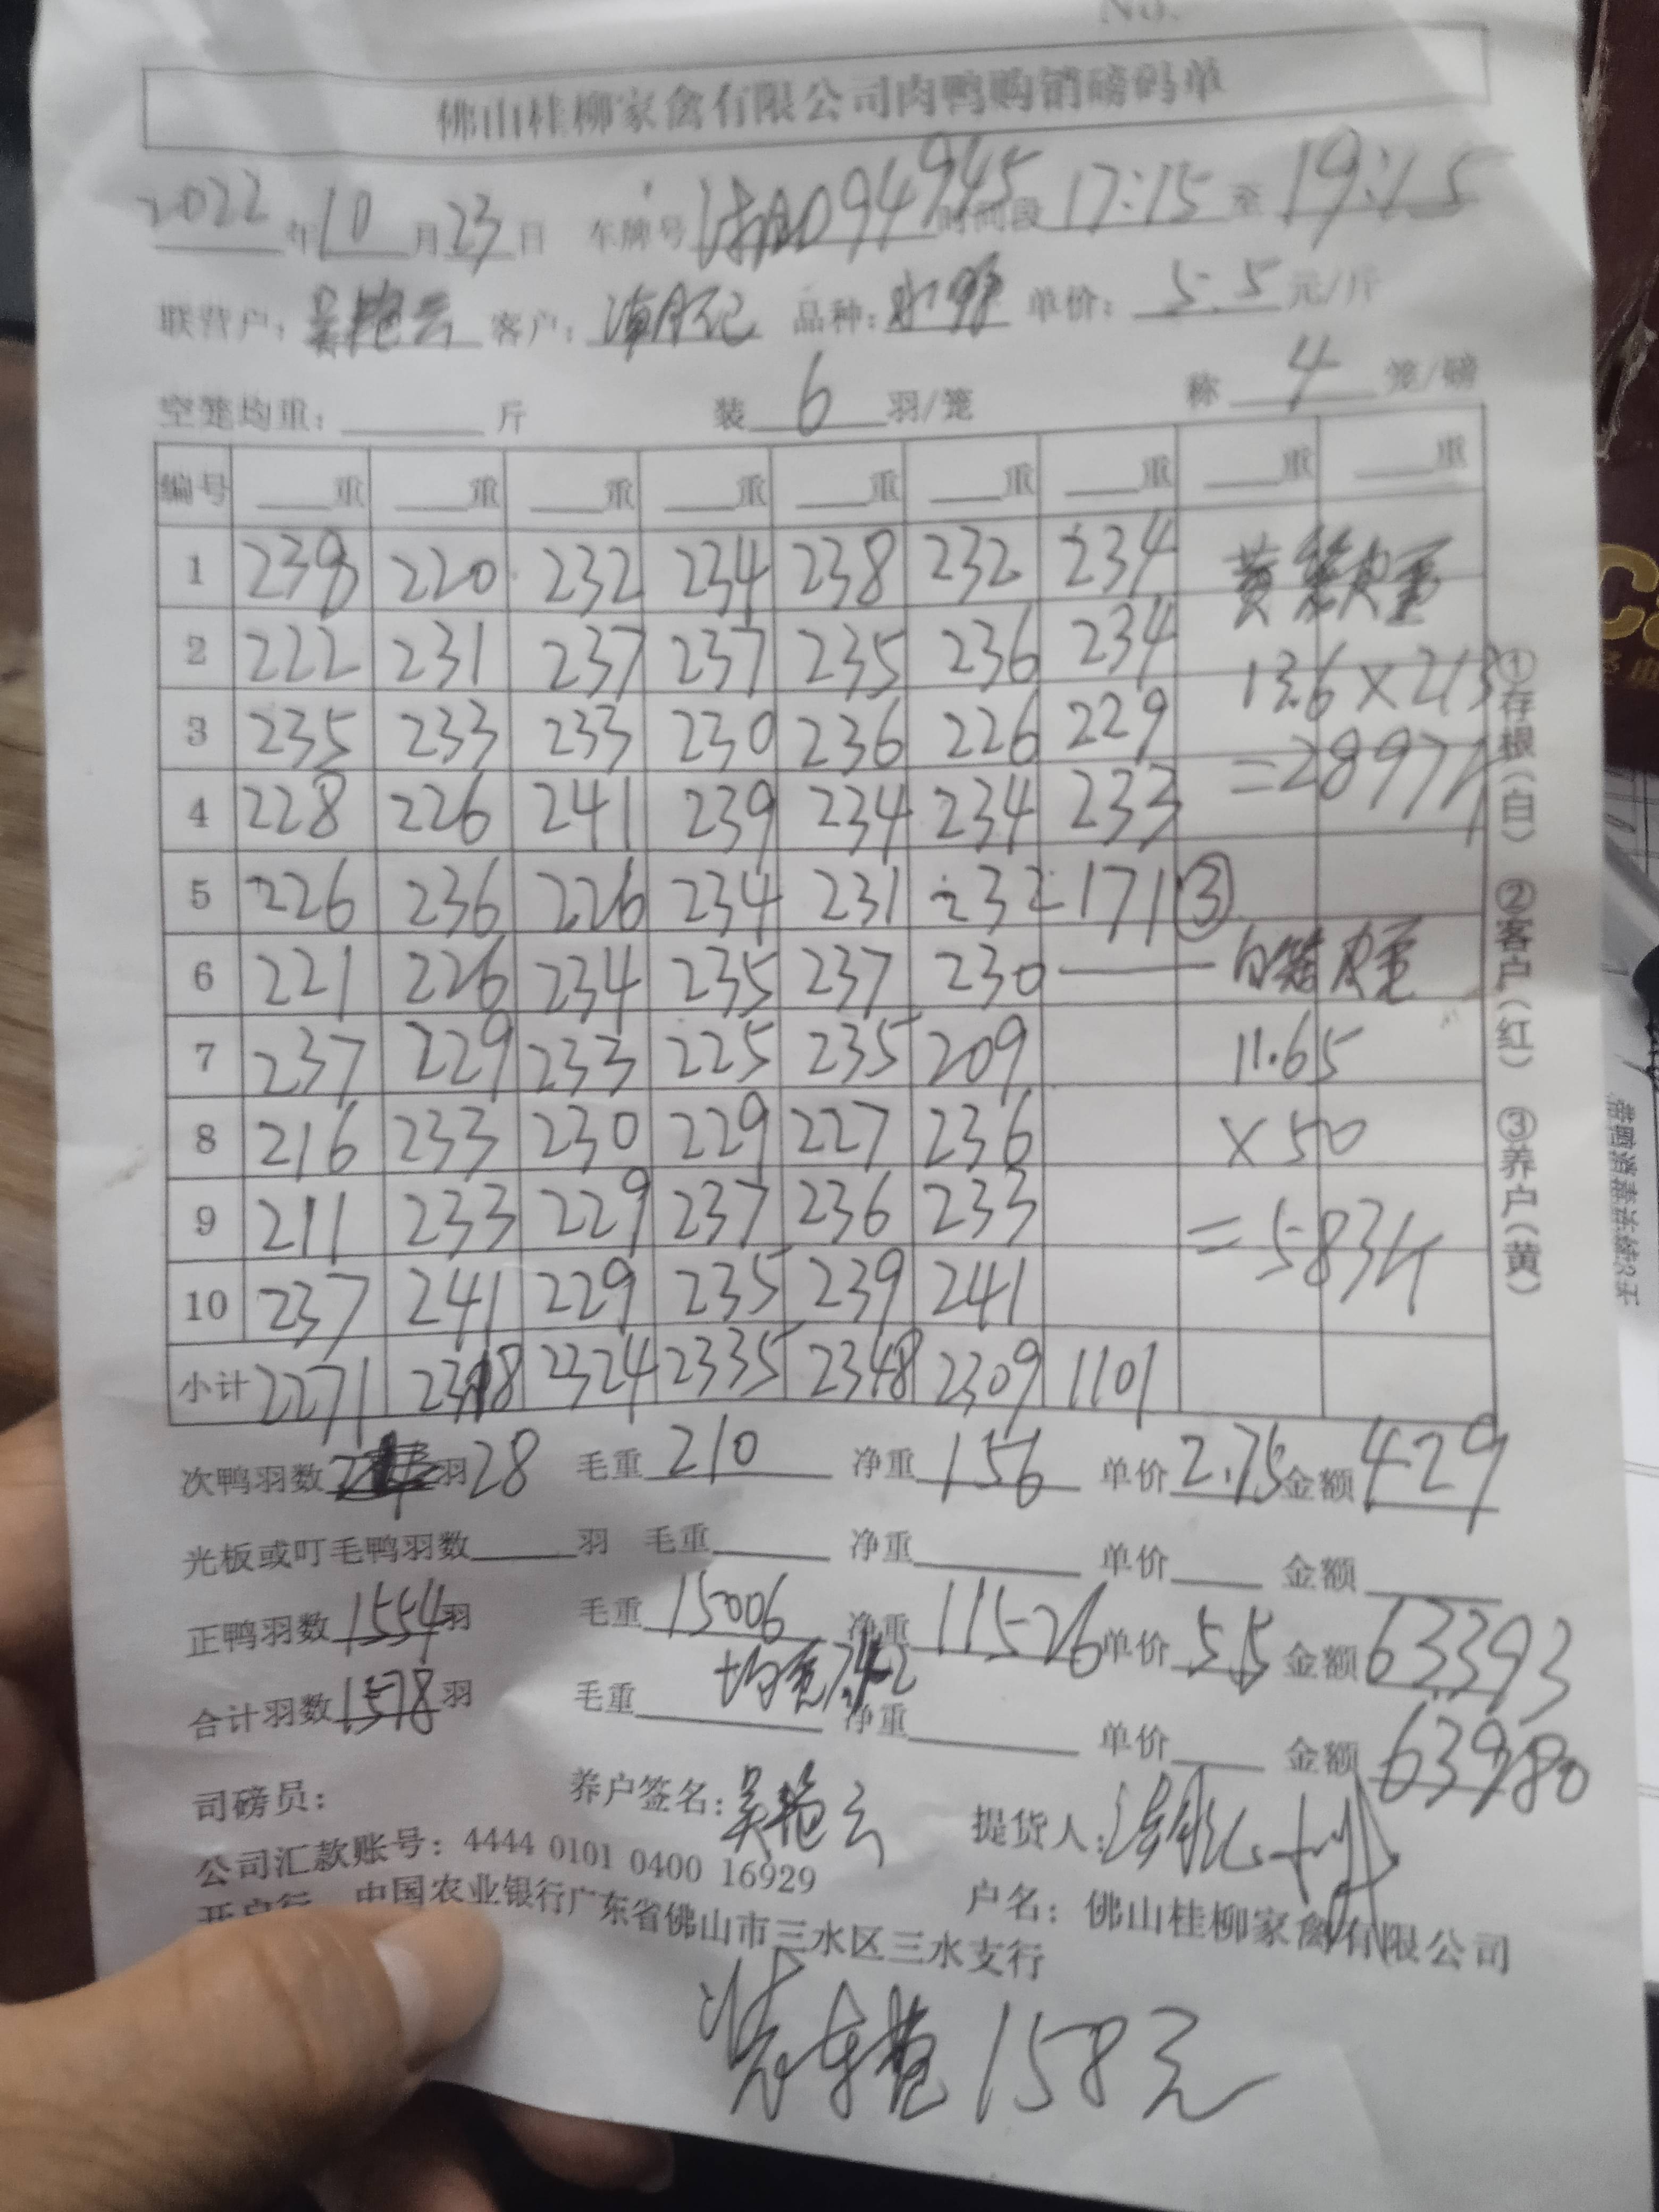 No.
佛山桂柳家禽有限公司肉鸭购销磅码单
2022年10月23日 车牌号 AD94945 时间段 17:15 至 19:15
联营户: 吴艳云 客户: 记 品种: 水鸭 单价: 5.5 元/斤
空笼均重: 斤 装 6 羽/笼 称 4 笼/磅
编号 重 重 重 重 重 重 重 重 重
1 238 220 232 234 238 232 234 黄笼皮重
2 222 231 237 237 235 236 234 13.6×213
3 235 233 233 230 236 226 229 =2897斤
4 228 226 241 239 234 234 233
5 226 236 226 234 231 232 171 ③
6 221 226 234 235 237 230 — 白笼皮重
7 237 229 233 225 235 209 11.65
8 216 233 230 229 227 236 ×50
9 211 233 229 237 236 233 =583斤
10 237 241 229 235 239 241
小计 2271 2318 2324 2335 2348 2309 1101
次鸭羽数 羽 28 毛重 210 净重 156 单价 2.75 金额 429
光板或叮毛鸭羽数 羽 毛重 净重 单价 金额
正鸭羽数 1554 羽 毛重 15006 净重 11526 单价 5.5 金额 63393
均重7.42
合计羽数 1578 羽 毛重 净重 单价 金额 63980
司磅员: 养户签名: 吴艳云 提货人:
公司汇款账号: 4444 0101 0400 16929 户名: 佛山桂柳家禽有限公司
开户行 中国农业银行广东省佛山市三水区三水支行
装车费158元
①存根(白) ②客户(红) ③养户(黄)